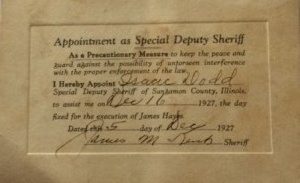 Appointment as Special Deputy Sheriff
As a Precautionary Measure to keep the peace and
guard against the possibility of untoreen interference
with the proper enforcement of the law.
I Hereby Appoint Isaac Dodd
Special Deputy Sheriff of Sangamon County, Illinois,
to assist me on Dec 16 1927, the day
fixed for the execution of James Hayes.
Dated this 15 day of Dec 1927
James M Sheriff